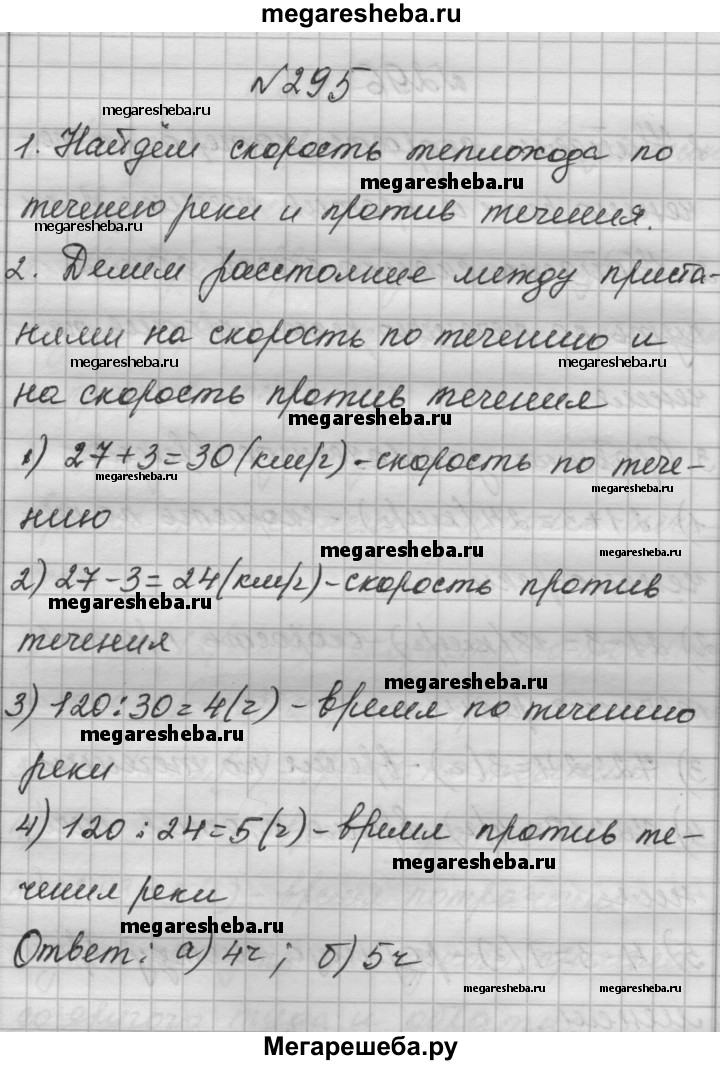 megaresheba.ru
№295
megaresheba.ru
1. Найдём скорость теплохода по
megaresheba.ru
течению реки и против течения.
megaresheba.ru
2. Делим расстояние между приста-
нями на скорость по течению и
megaresheba.ru megaresheba.ru
на скорость против течения
megaresheba.ru
1) 27+3=30(км/ч)-скорость по тече-
megaresheba.ru megaresheba.ru
нию
megaresheba.ru megaresheba.ru
2) 27-3=24(км/ч)-скорость против
megaresheba.ru
течения
megaresheba.ru
3) 120:30=4(ч)-время по течению
megaresheba.ru
реки
4) 120:24=5(ч)-время против те-
megaresheba.ru
чения реки
megaresheba.ru
Ответ: а) 4ч; б) 5ч
megaresheba.ru megaresheba.ru
Мегарешеба.ру